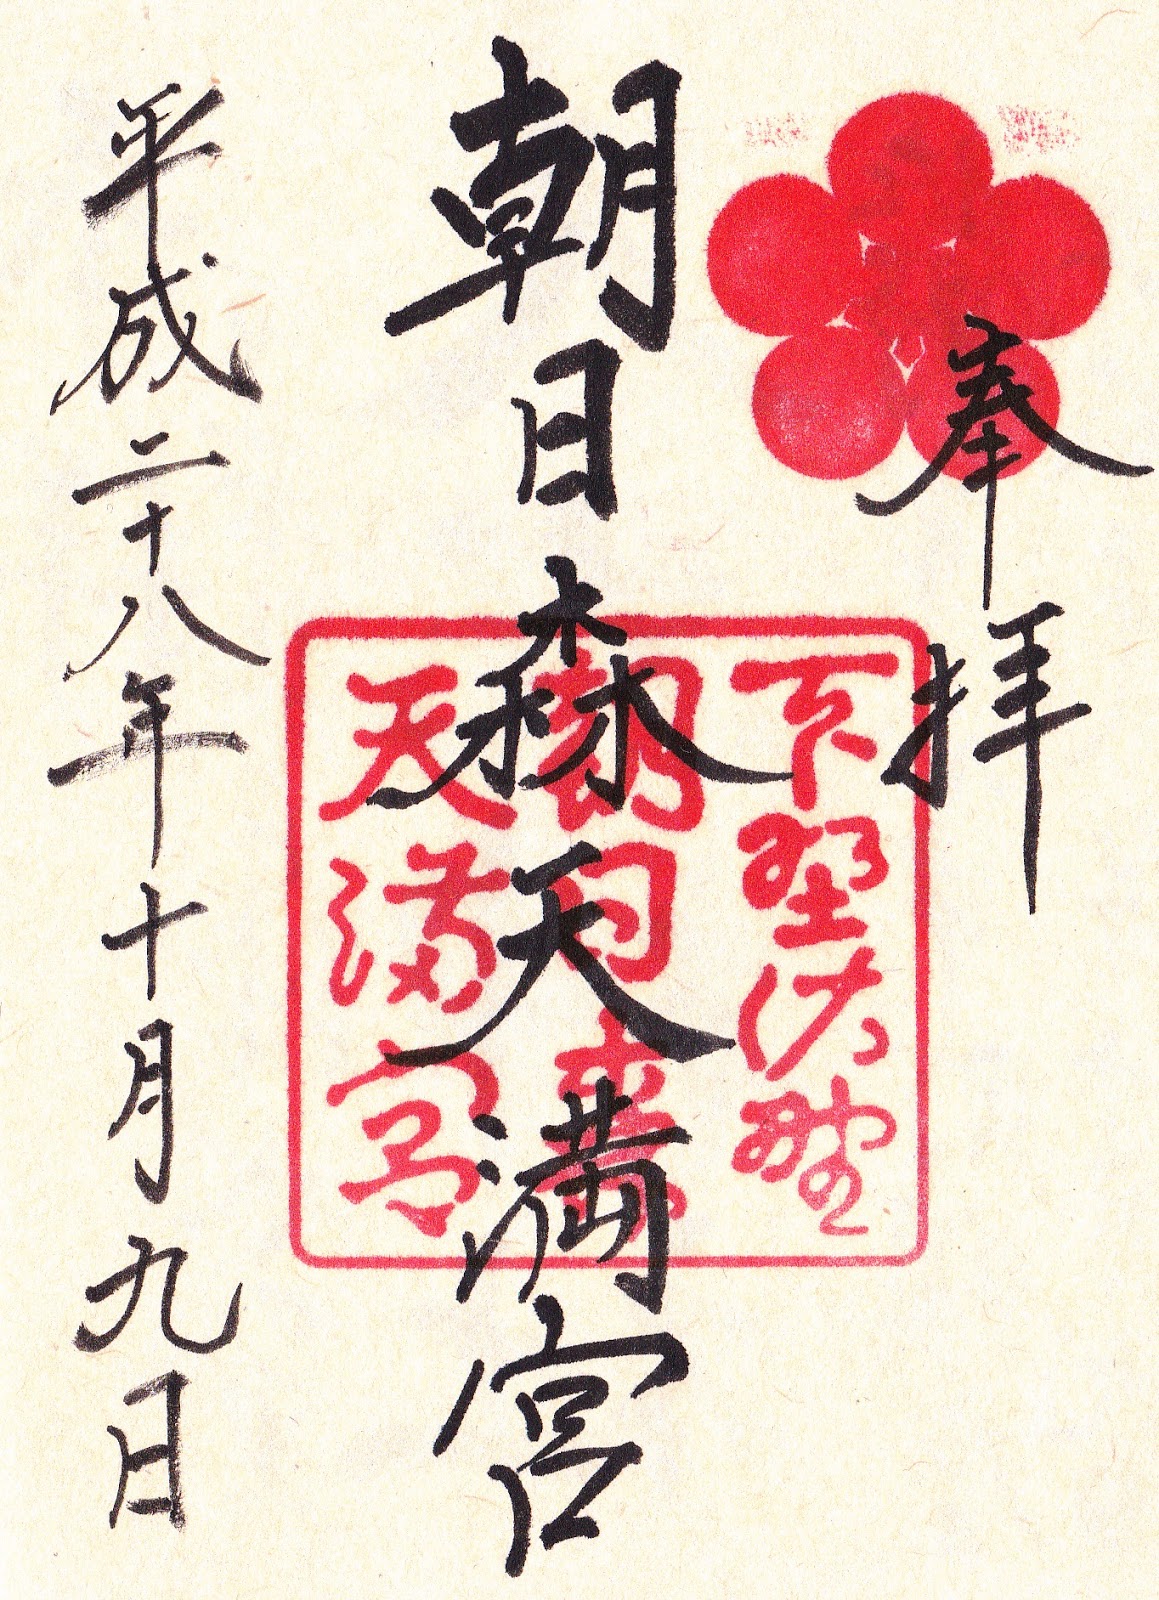 奉拝
下野佐野
朝日森
天満宮
朝日森天満宮
平成二十八年十月九日